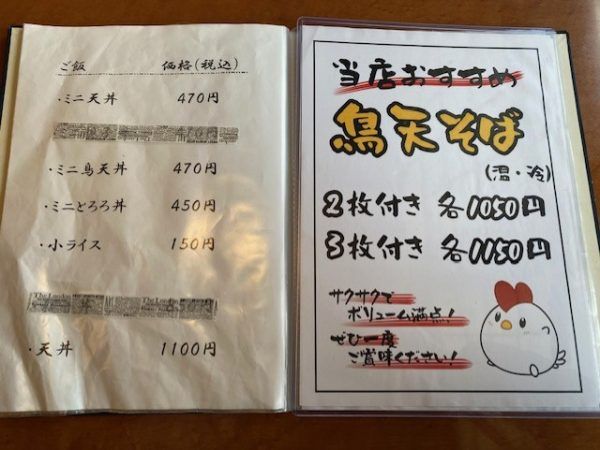 ご飯 価格(税込)
・ミニ天丼 470円
・ミニ鳥天丼 470円
・ミニとろろ丼 450円
・小ライス 150円
・天丼 1100円
当店おすすめ
鳥天そば
(温・冷)
2枚付き 各1050円
3枚付き 各1150円
サクサクで
ボリューム満点!
ぜひ一度
ご賞味ください!